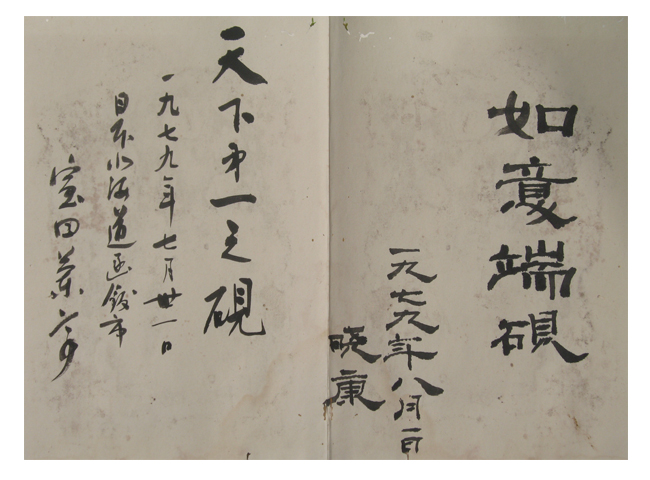 如意端硯
一九七九年八月一日
晓康
天下第一之硯
一九七九年七月廿一日
日本北海道函館市
宝田